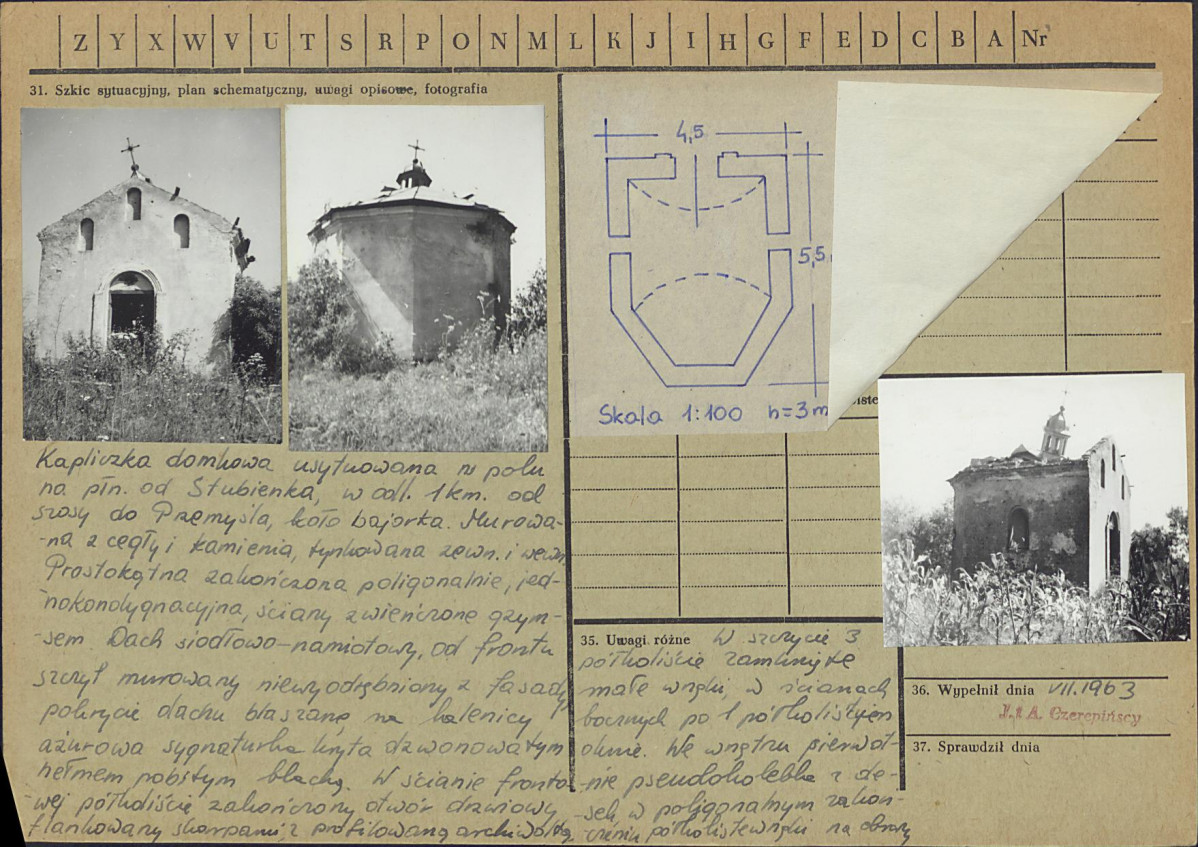 Z Y X W V U T S R P O N M L K J I H G F E D C B A Nr
31. Szkic sytuacyjny, plan schematyczny, uwagi opisowe, fotografia
4,5
5,5
Skala 1:100 h=3m
Kapliczka domkowa usytuowana w polu
na płn. od Stubienka, w odl. 1 km. od
szosy do Przemyśla, koło bajorka. Murowa-
-na z cegły i kamienia, tynkowana zewn. i wewn.
Prostokątna zakończona poligonalnie, jed-
nokondygnacyjna, ściany zwieńczone gzym-
-sem. Dach siodłowo-namiotowy, od frontu
szczyt murowany niewyodrębniony z fasady
pokrycie dachu blaszane, na kalenicy
ażurowa sygnaturka kryta dzwonowatym
hełmem pobitym blachą. W ścianie fronto-
wej półkoliście zakończony otwór drzwiowy
flankowany skarpami z profilowaną archiwoltą.
35. Uwagi różne W szczycie 3
półkoliście zamknięte
małe wnęki, w ścianach
bocznych po 1 półkolistym
oknie. We wnętrzu pierwot-
-nie pseudokolebka z de-
-sek, w poligonalnym zakoń-
czeniu półkoliste wnęki na obrazy
36. Wypełnił dnia VII.1963
J. i A. Czerepińscy
37. Sprawdził dnia